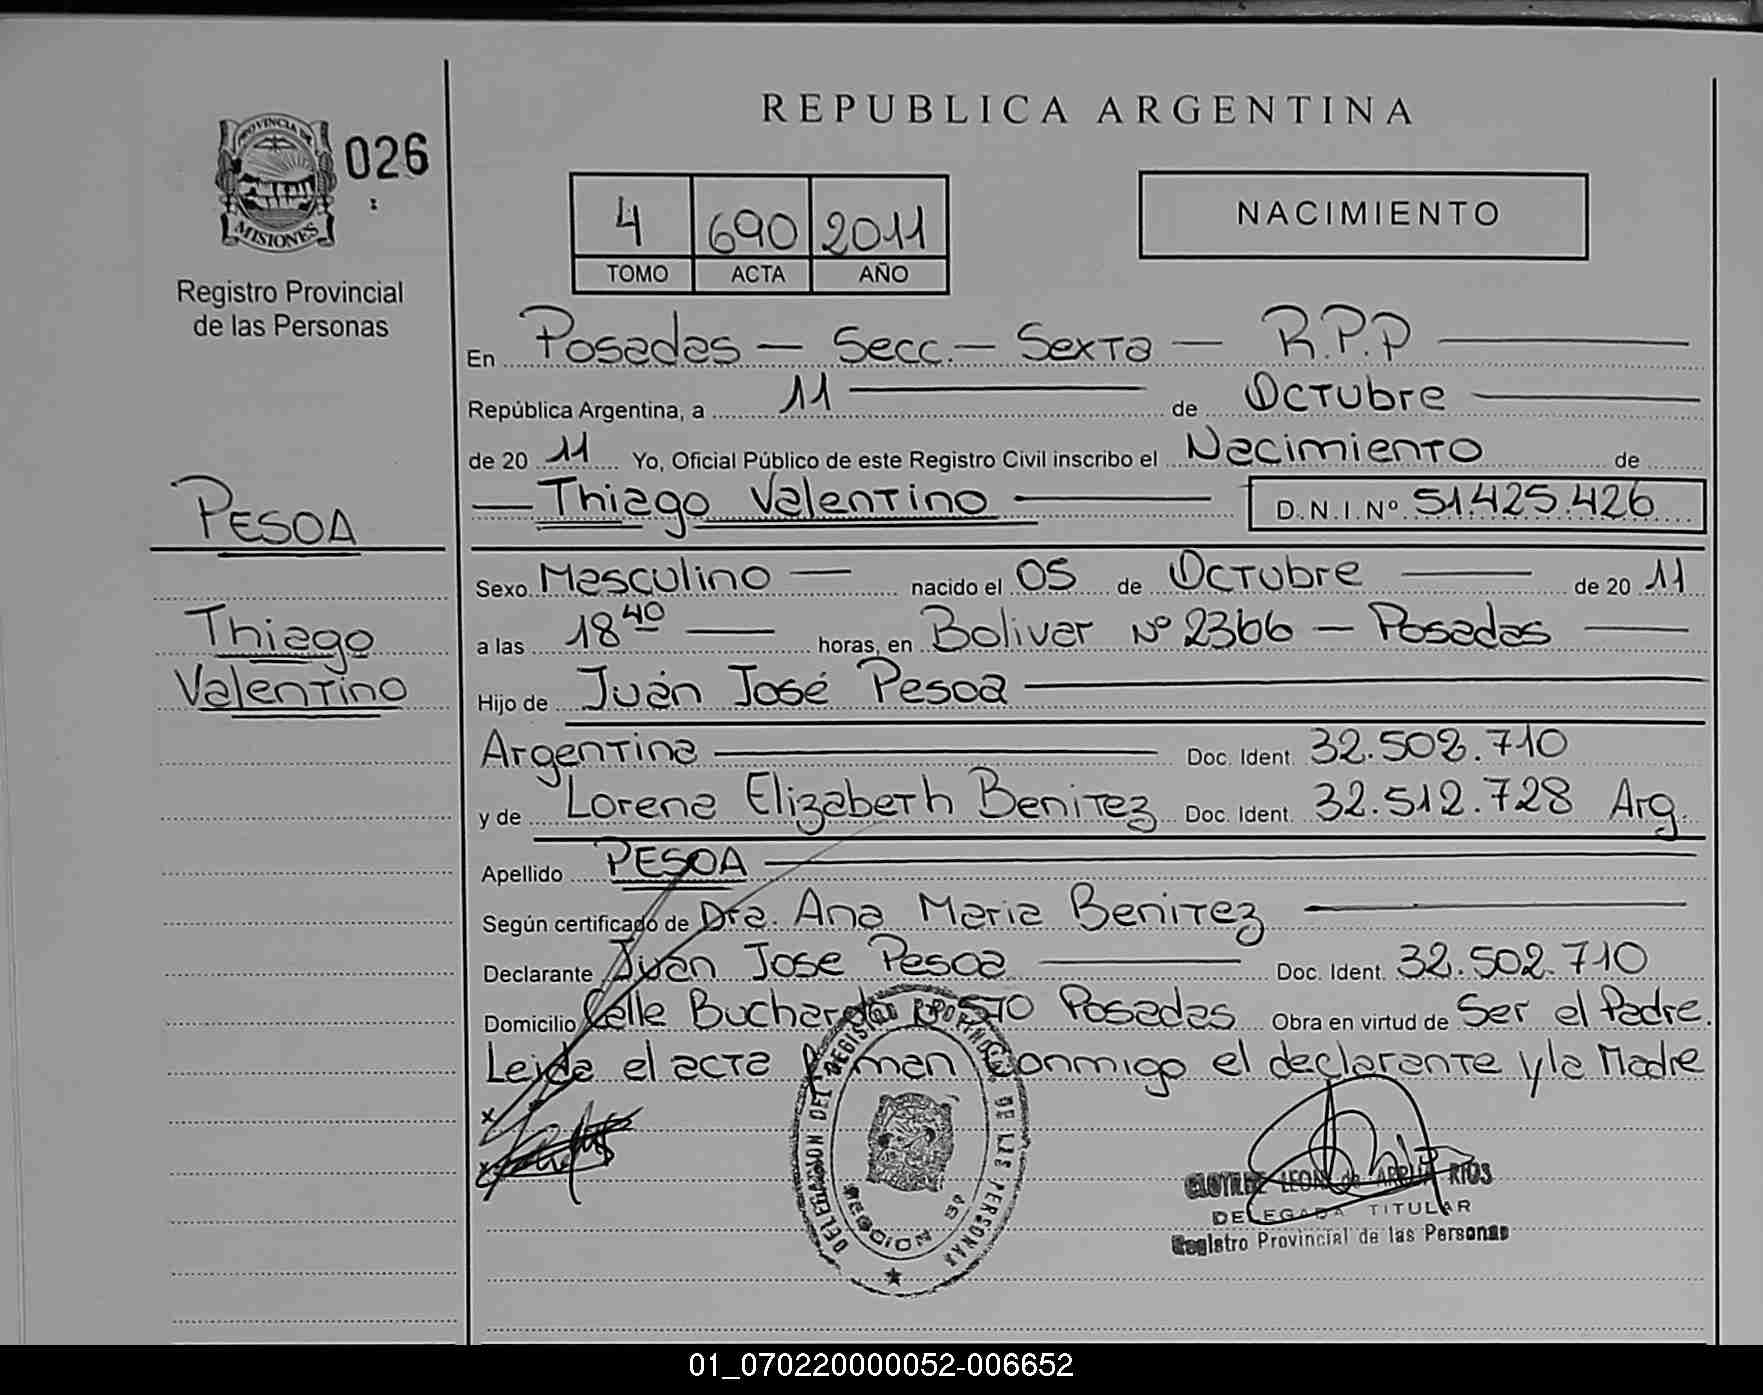 REPUBLICA ARGENTINA
PROVINCIA DE
MISIONES
026
Registro Provincial
de las Personas
4 690 2011
TOMO ACTA AÑO
NACIMIENTO
En Posadas — Secc. — Sexta — R.P.P
República Argentina, a 11 de Octubre
de 20 11 Yo, Oficial Público de este Registro Civil inscribo el Nacimiento de
— Thiago Valentino — D.N.I.Nº 51.425.426
PESOA
Thiago
Valentino
Sexo Masculino — nacido el 05 de Octubre — de 20 11
a las 18 40 — horas, en Bolivar Nº 2366 — Posadas —
Hijo de Juán José Pesoa
Argentina — Doc. Ident. 32.502.710
y de Lorena Elizabeth Benitez Doc. Ident. 32.512.728 Arg.
Apellido PESOA
Según certificado de Dra. Ana Maria Benitez
Declarante Juan Jose Pesoa — Doc. Ident. 32.502.710
Domicilio Calle Buchardo 570 Posadas Obra en virtud de Ser el Padre.
Leida el acta firman Conmigo el declarante y la Madre
x
x
DELEGACION DEL REGISTRO PROVINCIAL DE LAS PERSONAS
CLOTILDE LEONI de ARRUA RIOS
DELEGADA TITULAR
Registro Provincial de las Personas
01_070220000052-006652